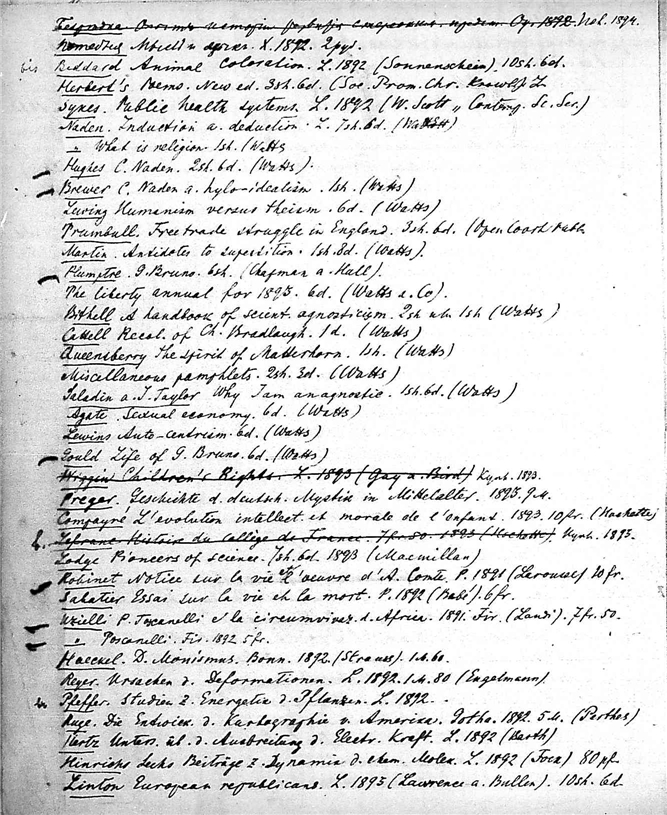 Beddard Animal Coloration. L. 1892 (Sonnenschein). 10sh. 6d.
Herbert's Poems. New ed. 3sh. 6d. (Soc. Prom. Chr. Knowl.) L.
Sykes. Public health systems. L. 1892 (W. Scott „ Contemp. Sc. Ser.)
Naden. Induction a. deduction. L. 7sh. 6d. (Watts)
„ What is religion. 1sh. (Watts
Hughes C. Naden. 2sh. 6d. (Watts).
Brewer C. Naden a. hylo-idealism. 1sh. (Watts)
Lewins Humanism versus theism. 6d. (Watts)
Trumbull. Free trade struggle in England. 3sh. 6d. (Open Court Publ.
Martin. Antidotes to superstition. 1sh. 8d. (Watts).
Plumptre. G. Bruno. 6sh. (Chapman a. Hall).
The liberty annual for 1893. 6d. (Watts a. Co).
Bithell A handbook of scient. agnosticism. 2sh 1sh (Watts)
Cattell Recol. of Ch. Bradlaugh. 1d. (Watts)
Queensberry The Spirit of Matterhorn. 1sh. (Watts)
Miscellaneous pamphlets. 2sh. 3d. (Watts)
Saladin a. J. Taylor Why I am an agnostic. 1sh. 6d. (Watts)
Agate. Sexual economy. 6d. (Watts)
Lewins Auto-centrism. 6d. (Watts)
Gould Life of G. Bruno. 6d. (Watts)
Wiggin Children's Rights. L. 1893 (Gay a. Bird) Купл. 1893.
Preger. Geschichte d. deutsch. Mystik im Mittelalter. 1893. 9 M.
Compayré L'évolution intellect. et morale de l'enfant. 1893. 10 fr. (Hachette)
Lefranc Histoire du Collège de France. 7 fr. 50. 1893 (Hachett.) Купл. 1893.
Lodge Pioneers of science. 7sh. 6d. 1893 (Macmillan)
Robinet Notice sur la vie et l'œuvre d'A. Comte. P. 1891 (Larousse) 20 fr.
Sabatier Essai sur la vie et la mort. P. 1892 (Babé). 6 fr.
Uzielli P. Toscanelli e la circumnavig. d. Africa. 1891. Fir. (Landi). 7 fr. 50.
„ Toscanelli. Fir. 1892 5 fr.
Haeckel. D. Monismus. Bonn. 1892. (Strauss). 1 M. 60.
Reyer. Ursachen d. Deformationen. L. 1892. 1 M. 80 (Engelmann).
Pfeffer. Studien z. Energetik d. Pflanzen. L. 1892.
Ruge. Die Entwick. d. Kartographie v. America. Gotha. 1892. 5 M. (Perthes)
Hertz Unters. üb. d. Ausbreitung d. Electr. Kraft. L. 1892 (Barth)
Hinrichs Sechs Beiträge z. Dynamik d. chem. Molek. L. 1892 (Fock) 80 pf.
Linton European republicans. L. 1893 (Lawrence a. Bullen). 10sh. 6d.